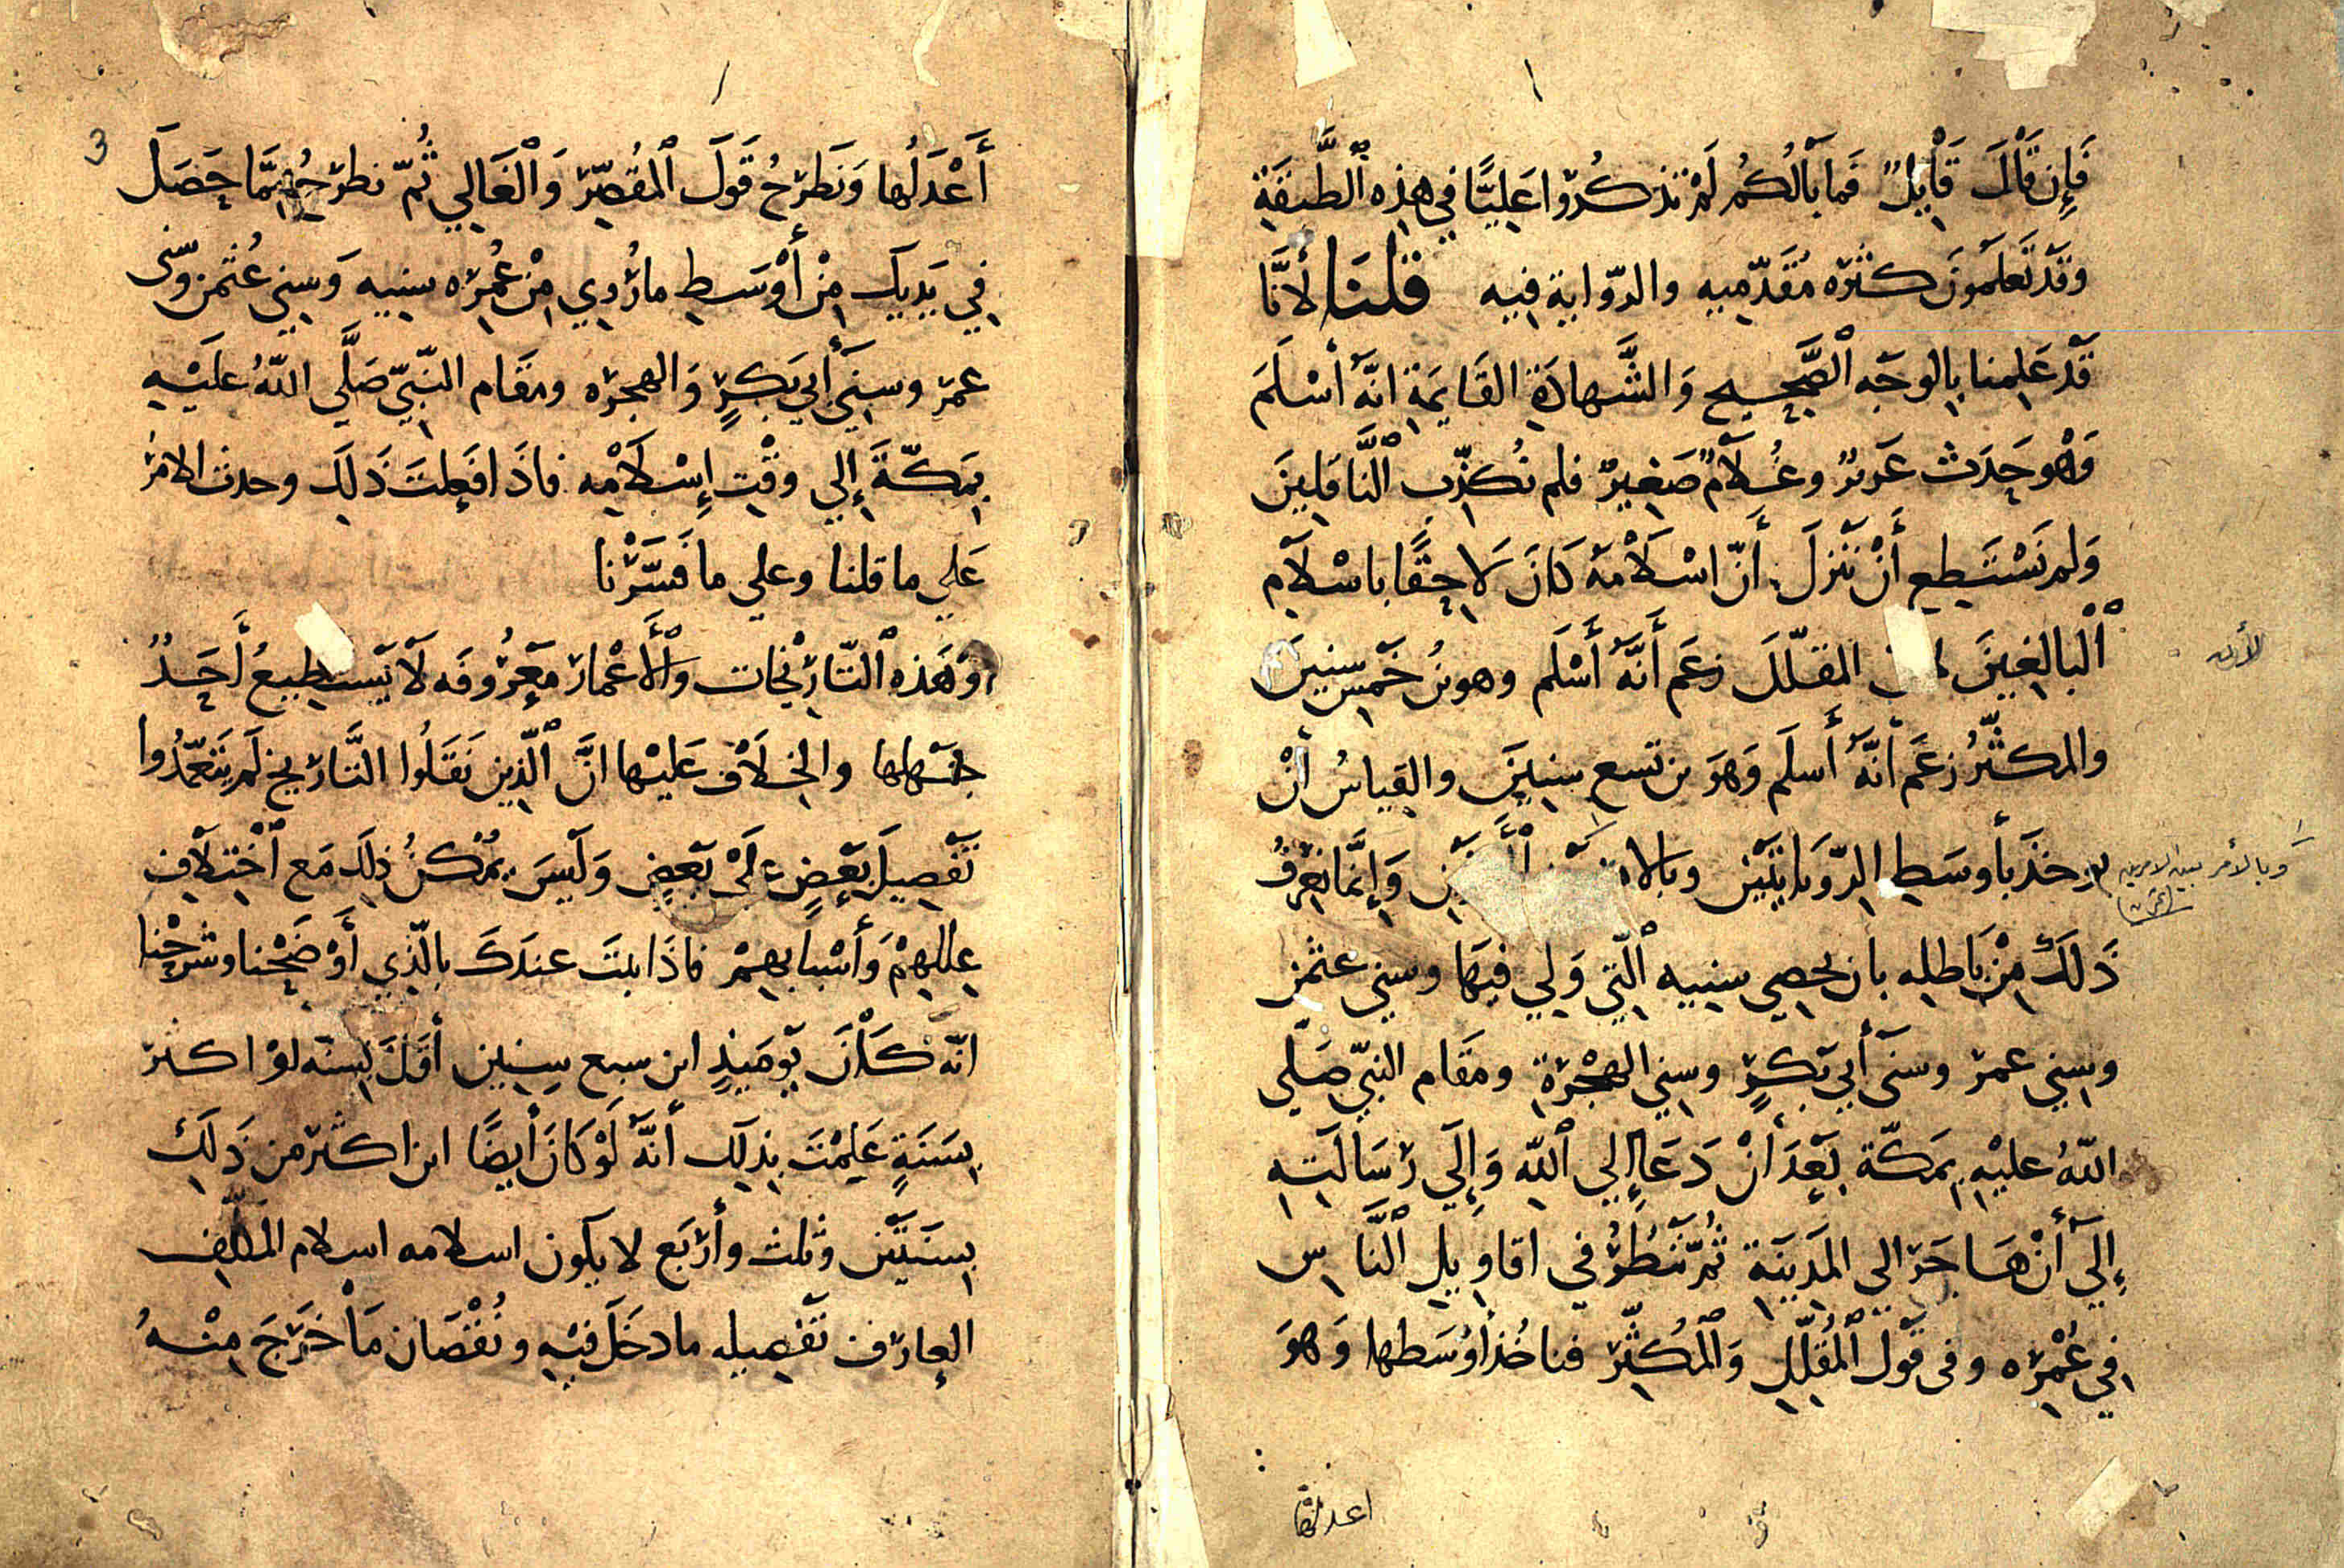 فَإِن قَالَ قَايِلٌ فَما بَالُكُم لَمْ تذكُروا عَلِيًّا في هذِه ٱلطَّبَقَةِ
وقَدْ تَعلَمونَ كثرَه مُقَدّمِيهِ والرّوايةِ فِيهِ قُلْنَا لأنَّا
قَدْ عَلِمنا بِالوجْهِ ٱلصَّحِيحِ وَالشَّهادَةِ القَايِمَةِ انَّهُ أسْلَمَ
وَهْو حَدَث غَرِيرٌ وغُلَامٌ صَغِيرٌ فلم نُكذِّب ٱلنَّاقِلِينَ
وَلم نَسْتَطِيع أَنْ نَنزلَ أَنّ اسْلَامَهُ كَانَ لَاحِقًا باسْلَامِ
ٱلْبالِغِينَ المقلّلَ زعَم أَنَّهُ أَسْلَم وهو بنُ خَمْسِ سِنِينَ
لأن
والمكثّرُ زعَم أنَّهُ أَسلَم وَهوَ بن تسع سِنِينَ والقِياسُ أنْ
يوخَذَ بأوسَطِ الرّوَايَتَيْنِ وبالا وَإِنَّما نَعرِفُ
وبالأمر بين الامرين
ذَلكَ مِنْ بَاطلِه بان نحصي سِنِيهِ ٱلَّتِي وَلِي فِيهَا وسني عثمٰن
وسِني عمرَ وسنَي أبِي بَكرٍ وسِنِي الهِجْرَةِ ومَقَام النبّي صَلَّي
اللّهُ عليْهِ بمَكّة بَعْدَ أَنْ دَعَا إلي ٱللّه وَإِلَي رِسَالَتِهِ
إِلَي أَنْ هَاجَرَ الى المَدِينَةِ ثُمَّ نَنْظُرُ في اقاوِيلِ ٱلنَّاسِ
فِي عُمْرِه وفى قَول ٱلْمُقَلِّلِ وَٱلْمُكثِّرِ فناخُذ أوْسَطها وَهوَ
اعدلها
أَعْدَلُها وَنَطرَحُ قَولَ ٱلمُقصِّرِ وَٱلْغَالِي ثُمّ نطرَحُ مِمَّا حَصَلَ
فِي يَدِيكَ مِنْ أَوْسَطِ ما رُوِي مِنْ عُمِرِه سِنِيهِ وَسِنِي عُثمٰن وسِّنى
عمرَ وسِنَي أبِي بَكرٍ وَالهجرَه ومقَام النَبّي صَلَّي اللّهُ عَليْهِ
بِمَكّةَ إلي وقْتِ إِسْلَامِه فاذَا فَعلتَ ذَلِكَ وحدت الامرَ
عَلي ما قلنا وعلي ما فَسَّرْنا
وَهَذه ٱلتّارِيْخَات وٱلأَعْمارَ مَعرُوفَه لَا يَسْتطِيعُ أَحَدٌ
جَهْلها والخِلَاف عَليْها انَّ ٱلّذِين نَقَلُوا التَّارِيخ لَم يَتعَمّدُوا
تَفْصِيلَ بَعْضٍ عَلَى بَعضٍ وَلَيسَ يُمْكنُ ذلِكَ مَع ٱخْتِلَافِ
عِلَلِهِمْ وَأَسْبابهِمْ فاذَا ثبتَ عندَكَ بالّذِي أَوْضَحْنا وشَرحْنا
انّهُ كَانَ يَوْمَيِذٍ ابن سبع سِنِين أقَلَّ بِسنَه لوْ اكثرَ
بِسَنَةٍ عَلِمْتَ بِذلِكَ أَنَّهُ لَوْ كَانَ أَيضًا ابن اكثر من ذَلِكَ
بِسنَتيْنِ وثلث وأَرْبَع لا يكون اسلامه اسلام المكَلّف
العارِف تَفْصِيله ما دخَلَ فيْهِ ونُقْصَان مَا خَرَجَ مِنْهُ
3